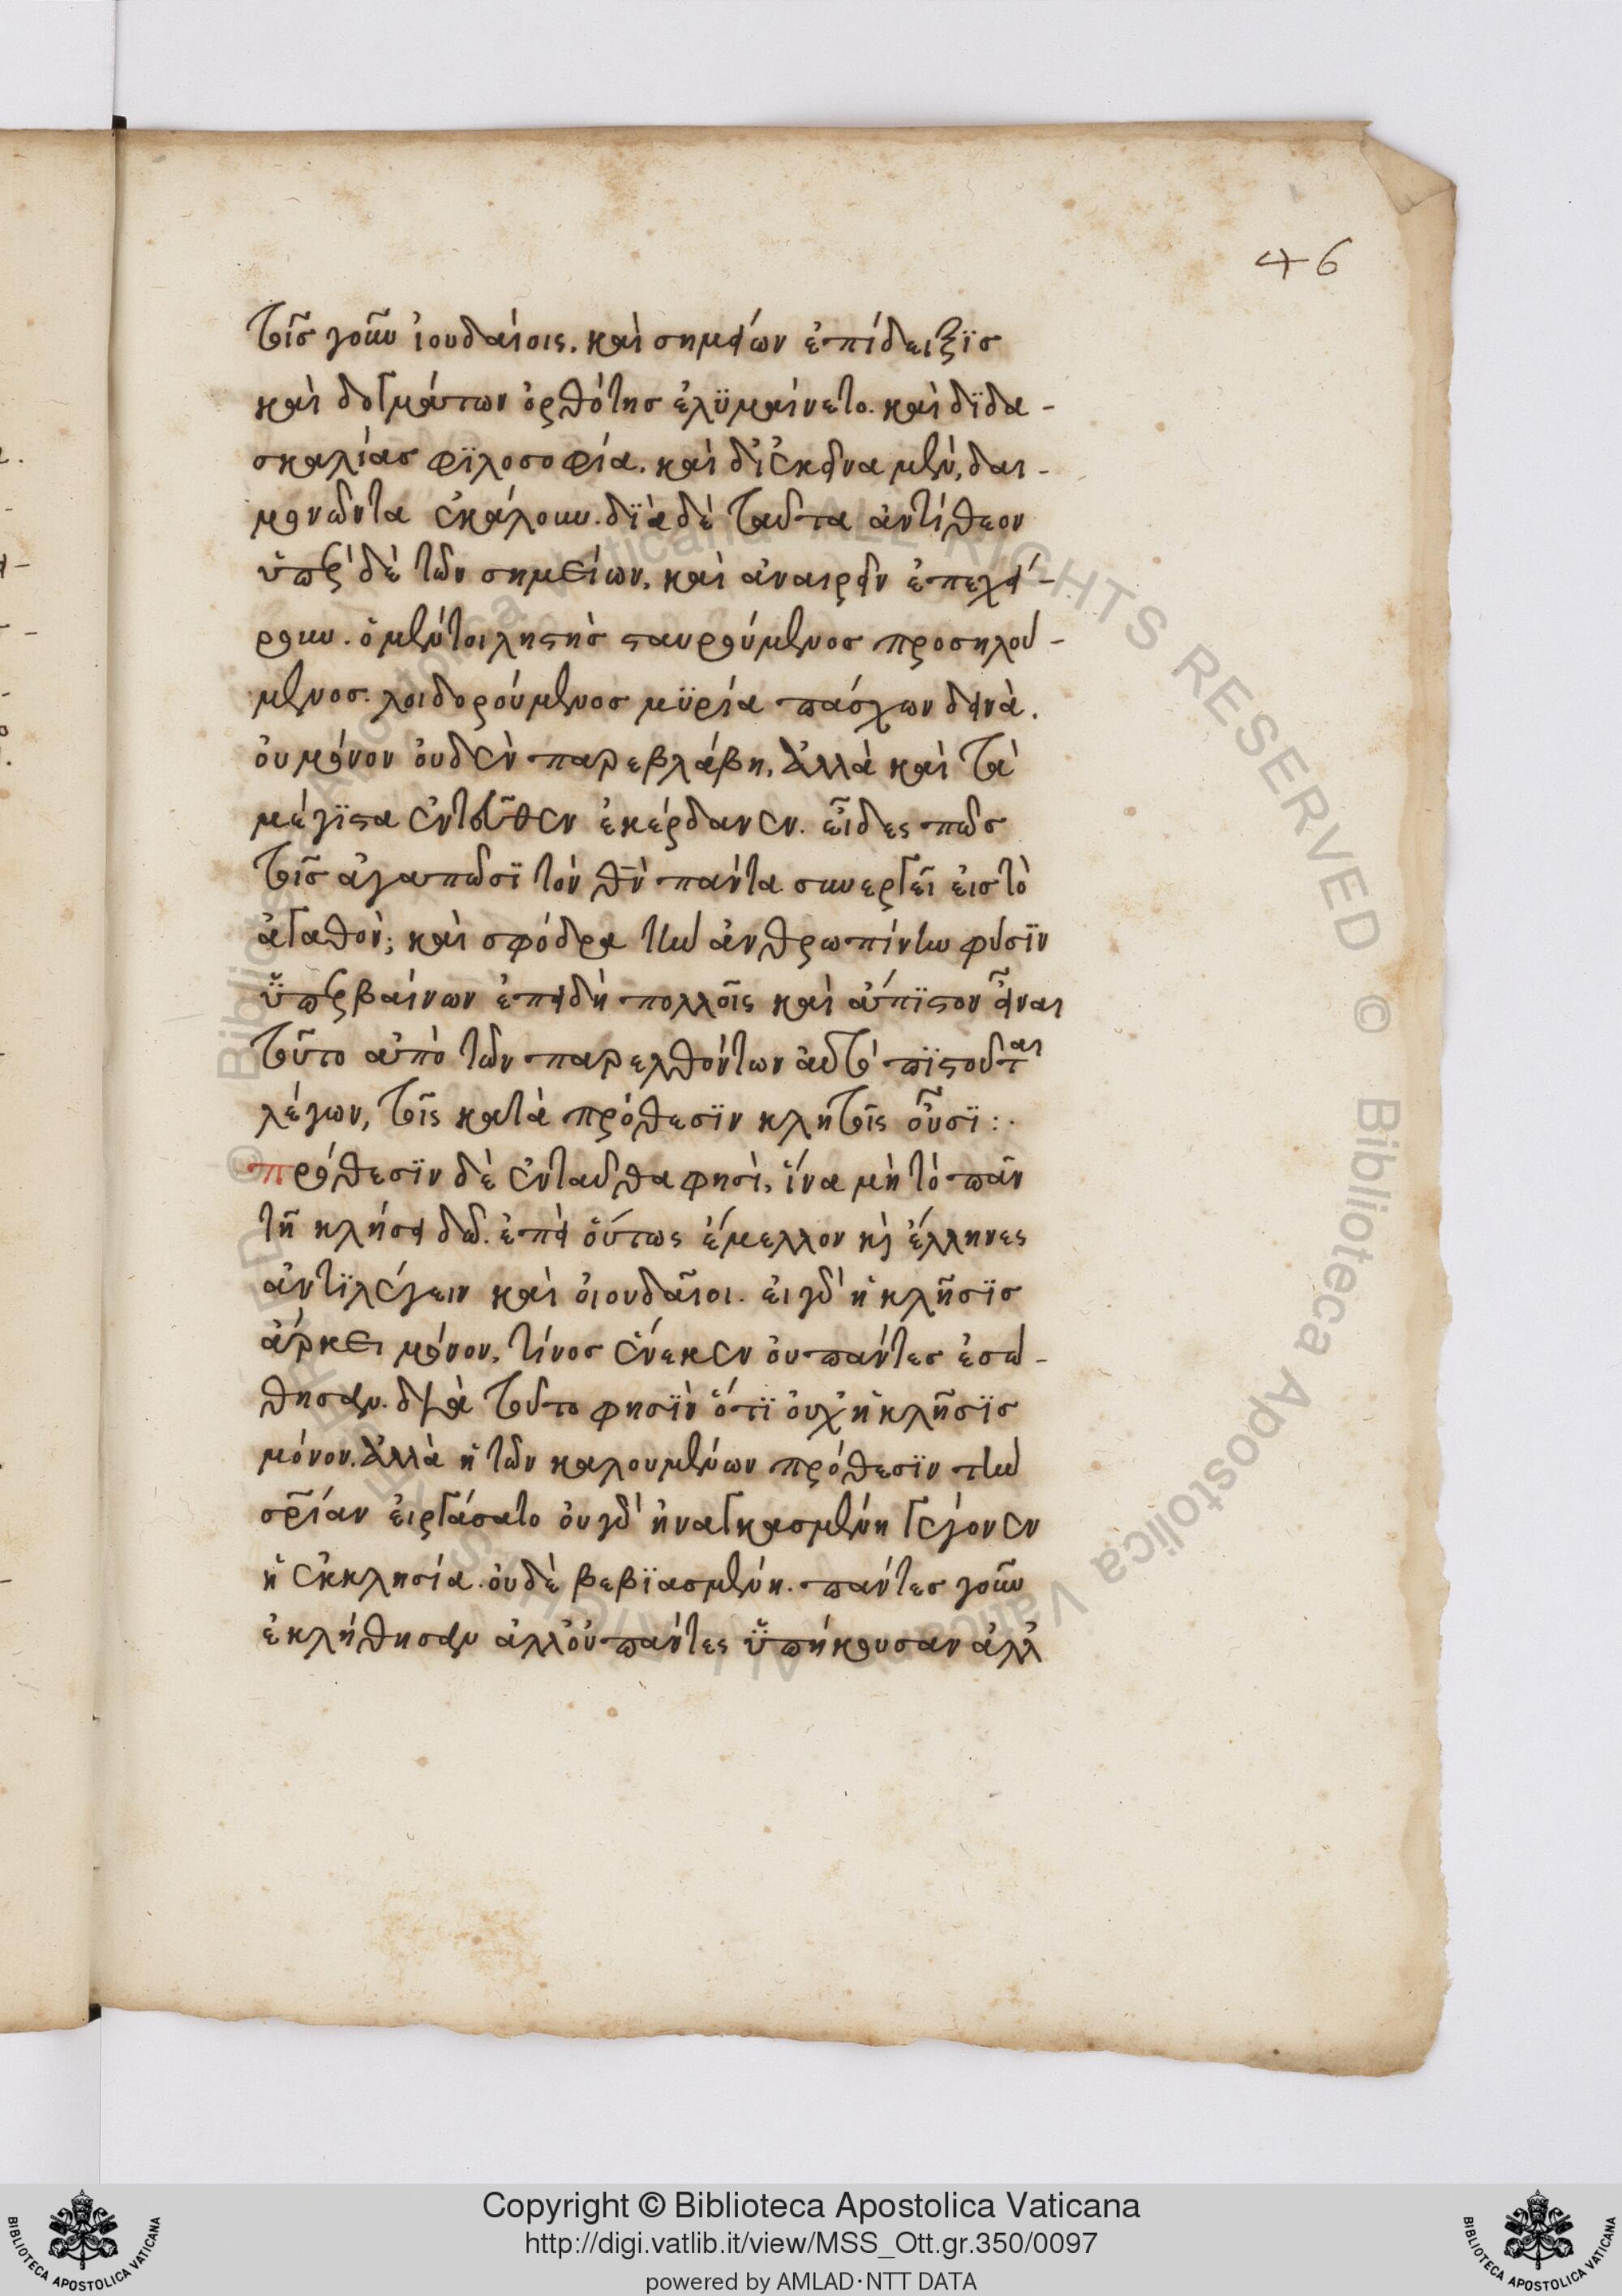 46
τοῖς γοῦν ἰουδαίοις. καὶ σημείων ἐπίδειξϊς
καὶ δογμάτων ὀρθότης ἐλϋμαίνετο. καὶ δϊδα-
σκαλίας φϊλοσοφία. καὶ δι' ἐκεῖνα μὲν, δαι-
μονῶντα ἐκάλουν. δϊὰ δὲ ταῦτα ἀντίθεον
ὑπὲρ δὲ τῶν σημείων, καὶ ἀναιρεῖν ἐπεχεί-
ρουν. ὁ μέντοι ληστὴς σταυρούμενος προσηλού-
μενος. λοιδορούμενος μϋρία πάσχων δεινὰ.
ὀυ μόνον ὀυδὲν παρεβλάβη. ἀλλὰ καὶ τὰ
μέγϊστα ἐντεῦθεν ἐκέρδανεν. εἶδες πῶς
τοῖς ἀγαπῶσϊ τὸν θν πάντα συνεργεῖ ἐις τὸ
ἀγαθὸν; καὶ σφόδρα τὴν ἀνθρωπίνην φύσϊν
ὑπερβαίνων ἐπειδὴ πολλοῖς καὶ ἄπϊστον εἶναι
τοῦτο ἀπὸ τῶν παρελθόντων ἀυτὸ πϊστοῦται
λέγων, τοῖς κατὰ πρόθεσϊν κλητοῖς οὖσϊ:.
πρόθεσϊν δὲ ἐνταῦθα φησὶ, ἵνα μὴ τὸ πᾶν
τῆ κλήσει δῶ. ἐπεὶ ὅυτως ἔμελλον κὶ ἕλληνες
ἀντϊλέγειν καὶ ὁιουδαῖοι. ἐι γὰρ ἡ κλῆσϊς
ἄρκει μόνον, τίνος ἕνεκεν ὀυ πάντες ἐσώ-
θησαν. δϊὰ τοῦτο φησϊν ὅτϊ ὀυχ' ἡ κλῆσϊς
μόνον. ἀλλὰ ἡ τῶν καλουμένων πρόθεσϊν τὴν
σρίαν ἐιργάσατο ὀυ γὰρ ἠναγκασμένη γέγονεν
ἡ ἐκκλησία. ὀυδὲ βεβϊασμένη. πάντες γοῦν
ἐκλήθησαν ἀλλ' ὀυ πάντες ὑπήκουσαν ἀλλ'
Copyright © Biblioteca Apostolica Vaticana
http://digi.vatlib.it/view/MSS_Ott.gr.350/0097
powered by AMLAD·NTT DATA